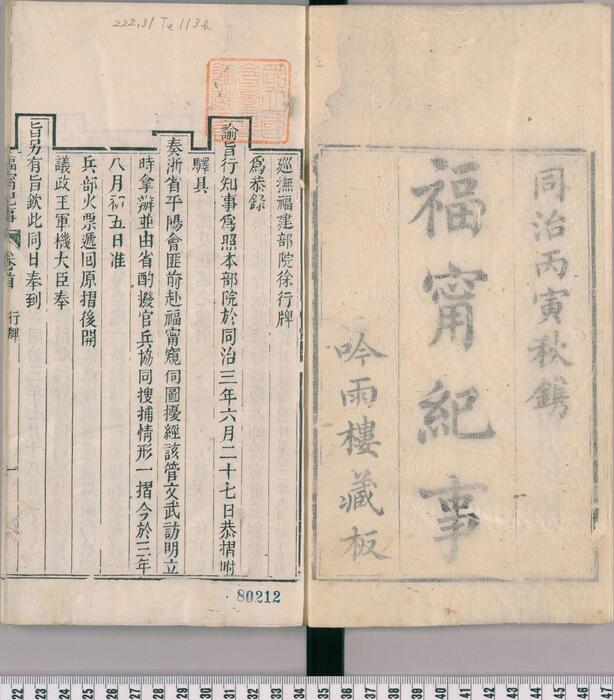 同治丙寅秋鐫
福甯紀事
吟雨樓藏板
222.31 Te 113h
巡撫福建部院徐行牌
為恭錄
諭旨行知事爲照本部院於同治三年六月二十七日恭摺附
驛具
奏浙省平陽會匪前赴福甯窺伺圖擾經該管文武訪明立
時拿辦並由省酌撥官兵協同搜捕情形一摺今於三年
八月初五日准
兵部火票遞回原摺後開
議政王軍機大臣奉
旨另有旨欽此同日奉到
福甯紀事 卷首 行牌 一
80212
22 23 24 25 26 27 28 29 30 31 32 33 34 35 36 37 38 39 40 41 42 43 44 45 46 47